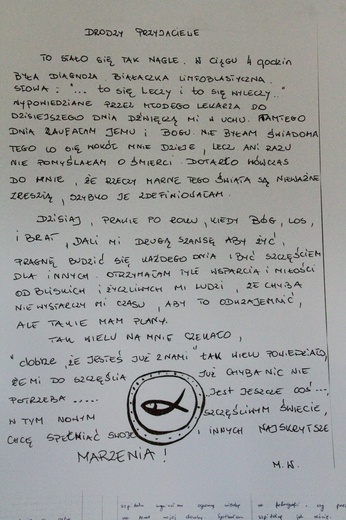 DRODZY PRZYJACIELE
TO STAŁO SIĘ TAK NAGLE. W CIĄGU 4 godzin
BYŁA DIAGNOZA. BIAŁACZKA LIMFOBLASTYCZNA.
SŁOWA: "... to SIĘ LECZY I to SIĘ WYLECZY.."
WYPOWIEDZIANE PRZEZ MŁODEGO LEKARZA DO
DZISIEJSZEGO DNIA DŹWIĘCZĄ MI W UCHU. PAMIĘTNEGO
DNIA ZAUFAŁAM JEMU I BOGU. NIE BYŁAM ŚWIADOMA
TEGO CO SIĘ WOKÓŁ MNIE DZIEJE, LECZ ANI RAZU
NIE POMYŚLAŁAM O ŚMIERCI. DOTARŁO WÓWCZAS
DO MNIE, ŻE RZECZY MARNE TEGO ŚWIATA SĄ NIEWAŻNE
ZRESZTĄ, SZYBKO JE ZDEFINIOWAŁAM.
DZISIAJ, PRAWIE PO ROKU, KIEDY BÓG, LOS,
I BRAT, DALI MI DRUGĄ SZANSĘ ABY ŻYĆ,
PRAGNĘ BUDZIĆ SIĘ KAŻDEGO DNIA I BYĆ SZCZĘŚCIEM
DLA INNYCH. OTRZYMAŁAM TYLE WSPARCIA I MIŁOŚCI
OD BLISKICH I ŻYCZLIWYCH MI LUDZI, ŻE CHYBA
NIE WYSTARCZY MI CZASU, ABY TO ODWZAJEMNIĆ,
ALE TAKIE MAM PLANY.
TAK WIELU NA MNIE CZEKAŁO,
"dobrze, ŻE JESTEŚ JUŻ Z NAMI" TAK WIELU POWIEDZIAŁO,
ŻE MI DO SZCZĘŚCIA JUŻ CHYBA NIC NIE
POTRZEBA ..... JEST JESZCZE COŚ...,
W TYM NOWYM SZCZĘŚLIWYM ŚWIECIE,
CHCĘ SPEŁNIAĆ SWOJE I INNYCH NAJSKRYTSZE
MARZENIA!
M.W.